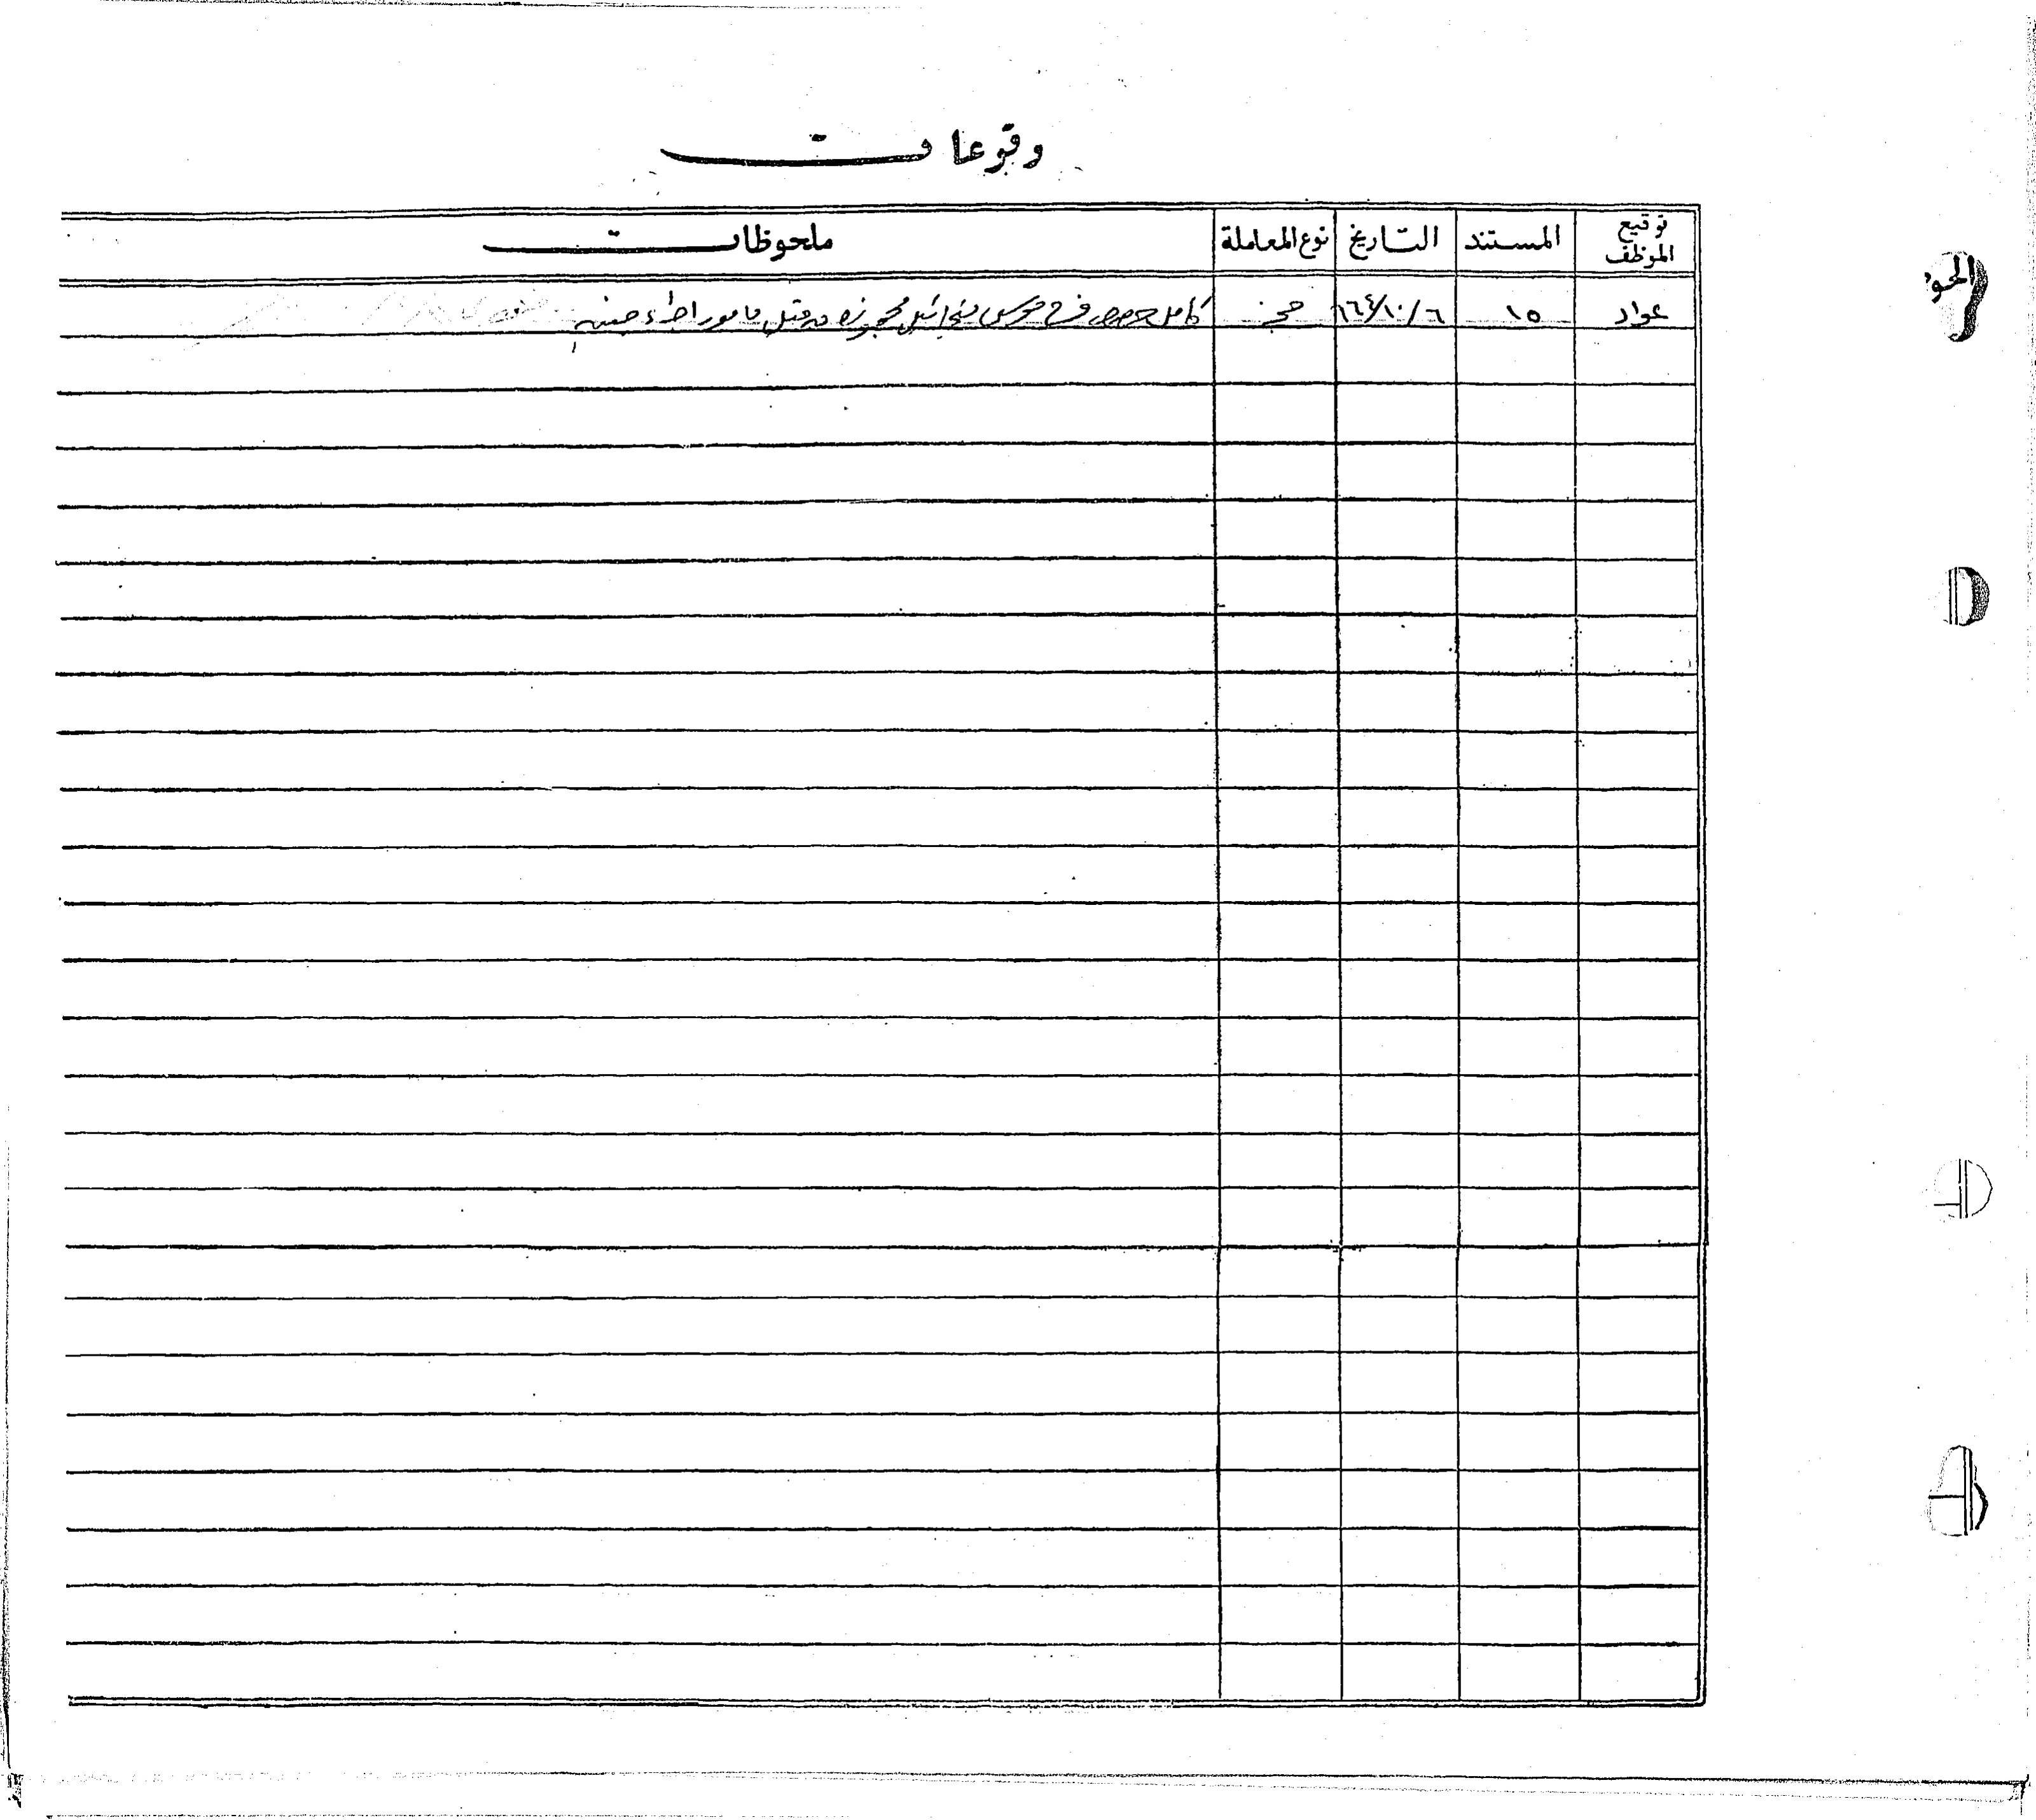 وقوعات
توقيع الموظف المستند التاريخ نوع المعاملة ملحوظات
عواد ١٥ ٦٤/١٠/٦ حجز كامل حصص فرح مخائيل محجوزة من قبل مامور اجراء